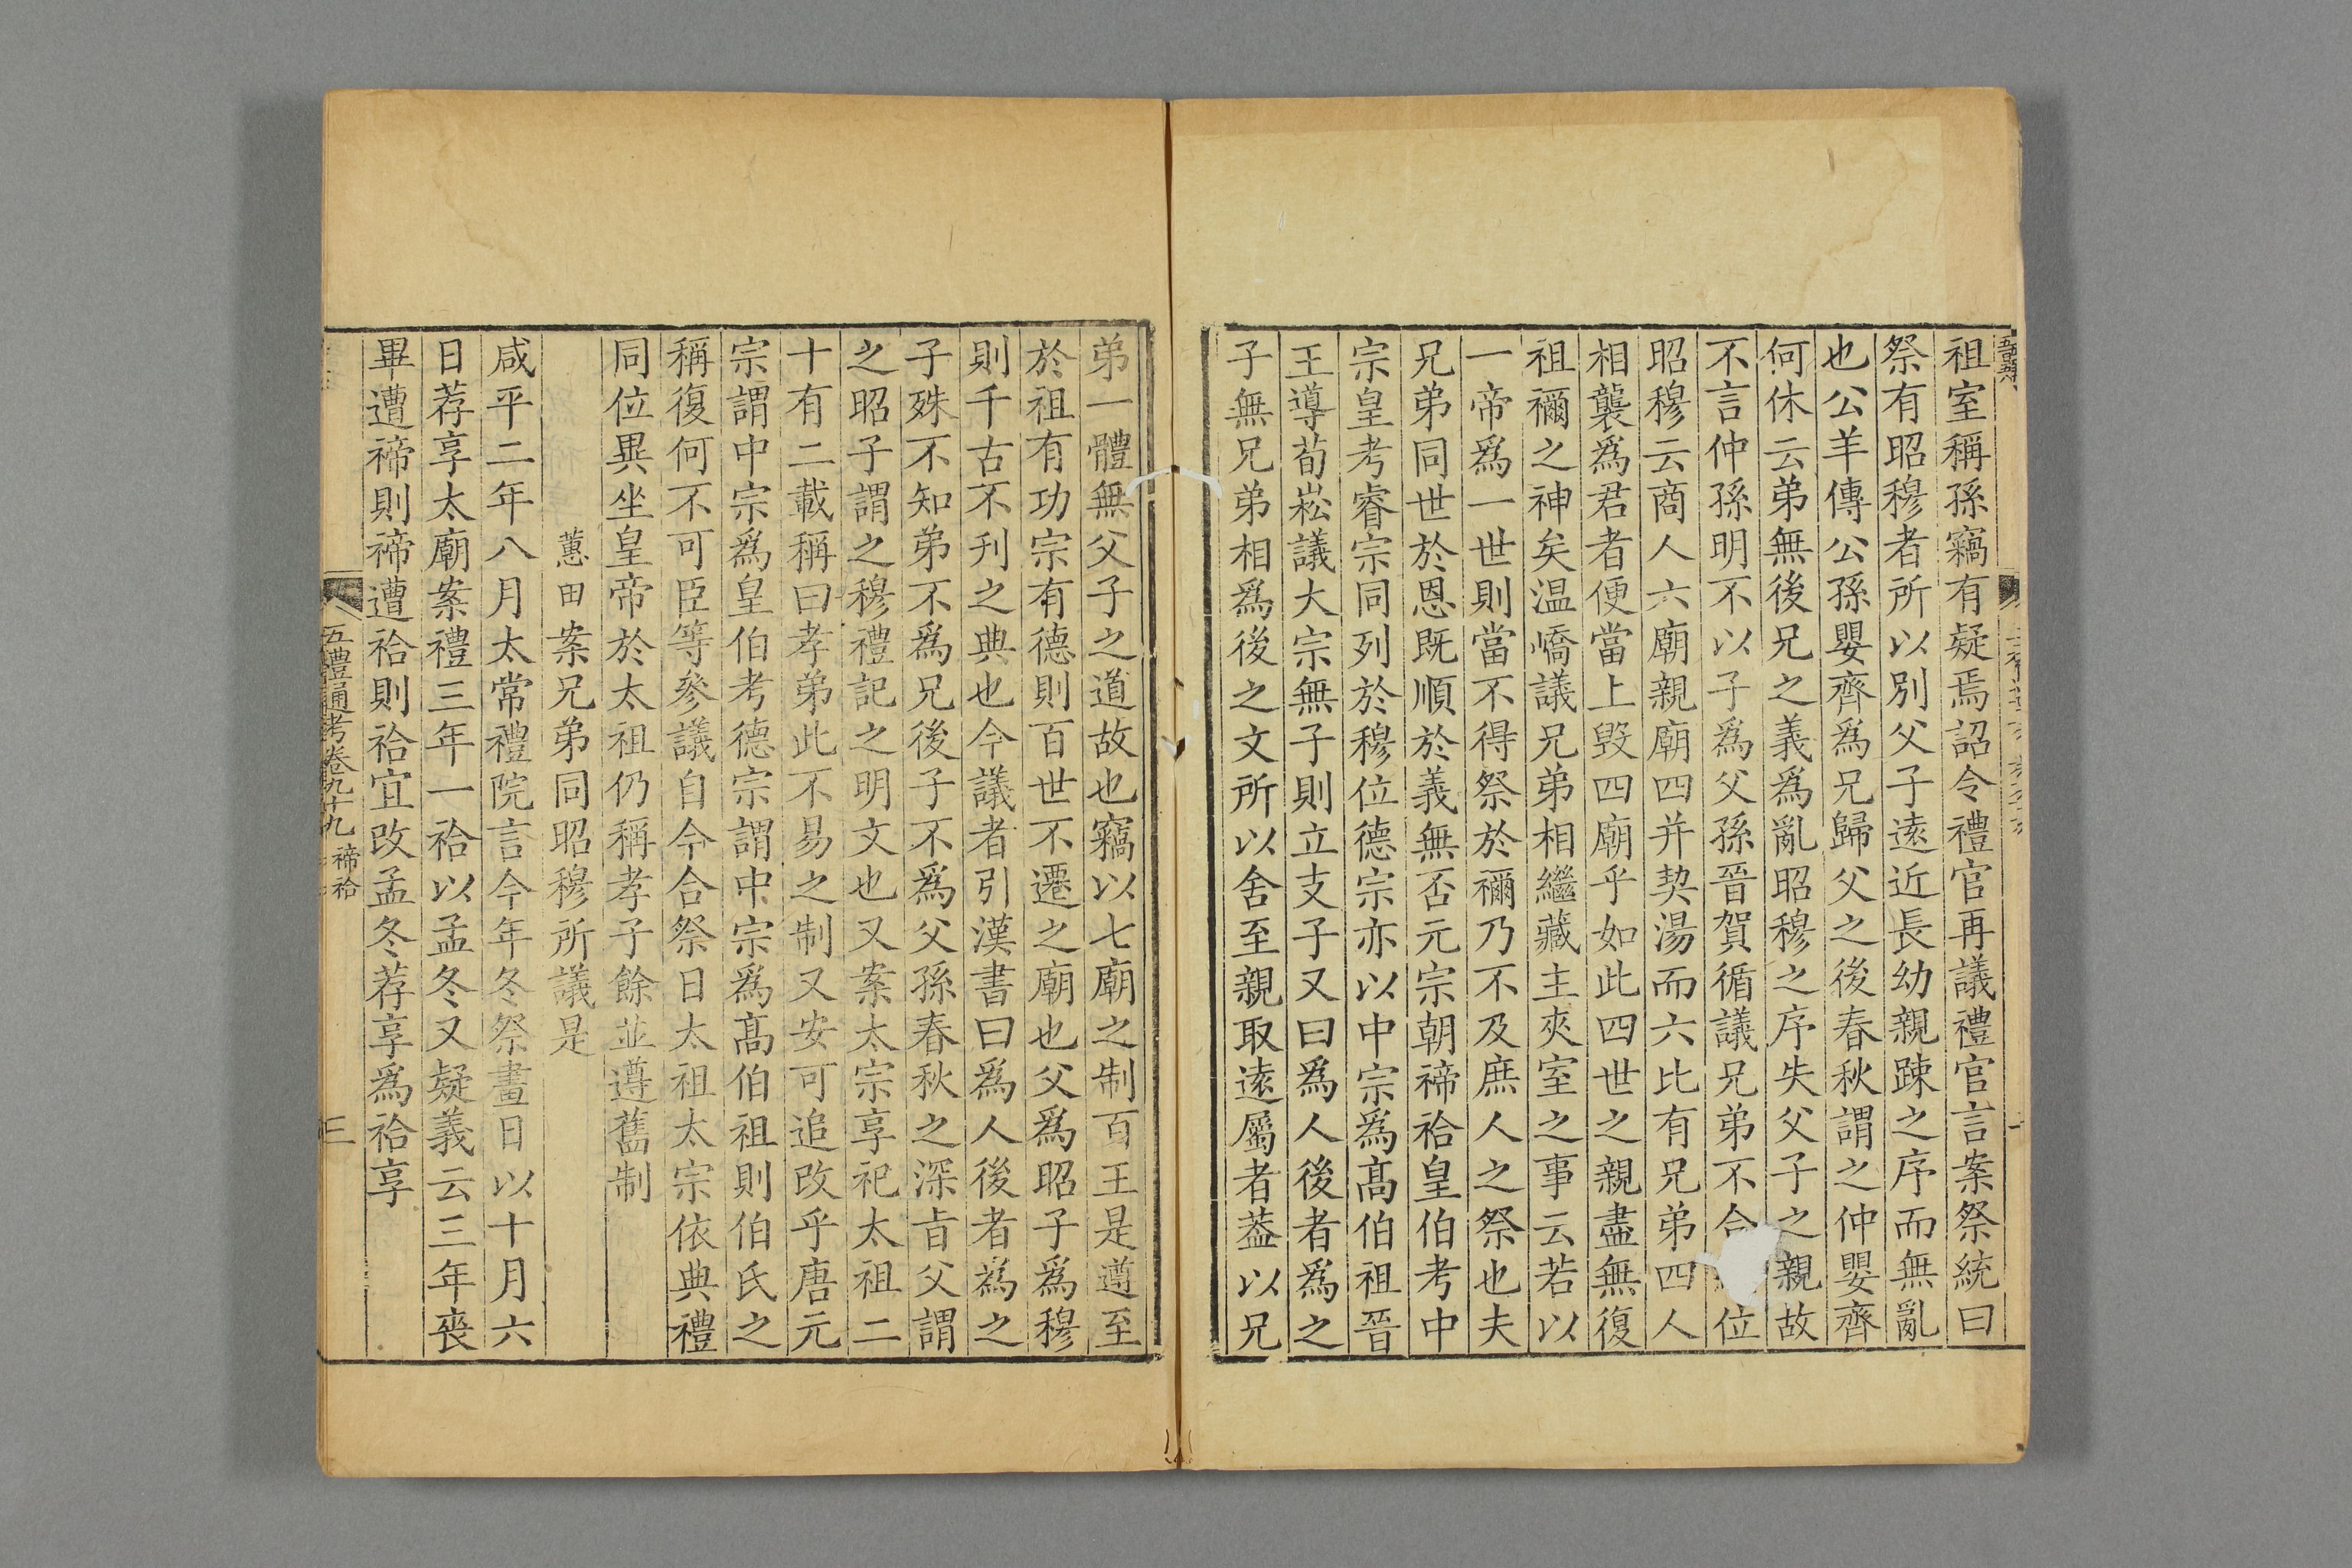 祖室稱孫竊有疑焉詔令禮官再議禮官言案祭統曰
祭有昭穆者所以別父子遠近長幼親踈之序而無亂
也公羊傳公孫嬰齊爲兄歸父之後春秋謂之仲嬰齊
何休云弟無後兄之義爲亂昭穆之序失父子之親故
不言仲孫明不以子爲父孫晉賀循議兄弟不合位
昭穆云商人六廟親廟四并契湯而六比有兄弟四人
相襲爲君者便當上毀四廟乎如此四世之親盡無復
祖禰之神矣温嶠議兄弟相繼藏主夾室之事云若以
一帝爲一世則當不得祭於禰乃不及庶人之祭也夫
兄弟同世於恩既順於義無否元宗朝禘祫皇伯考中
宗皇考睿宗同列於穆位德宗亦以中宗爲髙伯祖晉
王導荀崧議大宗無子則立支子又曰爲人後者爲之
子無兄弟相爲後之文所以舍至親取遠屬者葢以兄
弟一體無父子之道故也竊以七廟之制百王是遵至
於祖有功宗有德則百世不遷之廟也父爲昭子爲穆
則千古不刊之典也今議者引漢書曰爲人後者為之
子殊不知弟不爲兄後子不爲父孫春秋之深㫖父謂
之昭子謂之穆禮記之明文也又案太宗享祀太祖二
十有二載稱曰孝弟此不易之制又安可追改乎唐元
宗謂中宗爲皇伯考德宗謂中宗爲髙伯祖則伯氏之
稱復何不可臣等參議自今合祭日太祖太宗依典禮
同位異坐皇帝於太祖仍稱孝子餘並遵舊制
蕙田案兄弟同昭穆所議是
咸平二年八月太常禮院言今年冬祭畫日以十月六
日荐享太廟案禮三年一祫以孟冬又疑義云三年喪
畢遭禘則禘遭祫則祫宜改孟冬荐享爲祫享
五禮通考卷九十九 禘祫 三